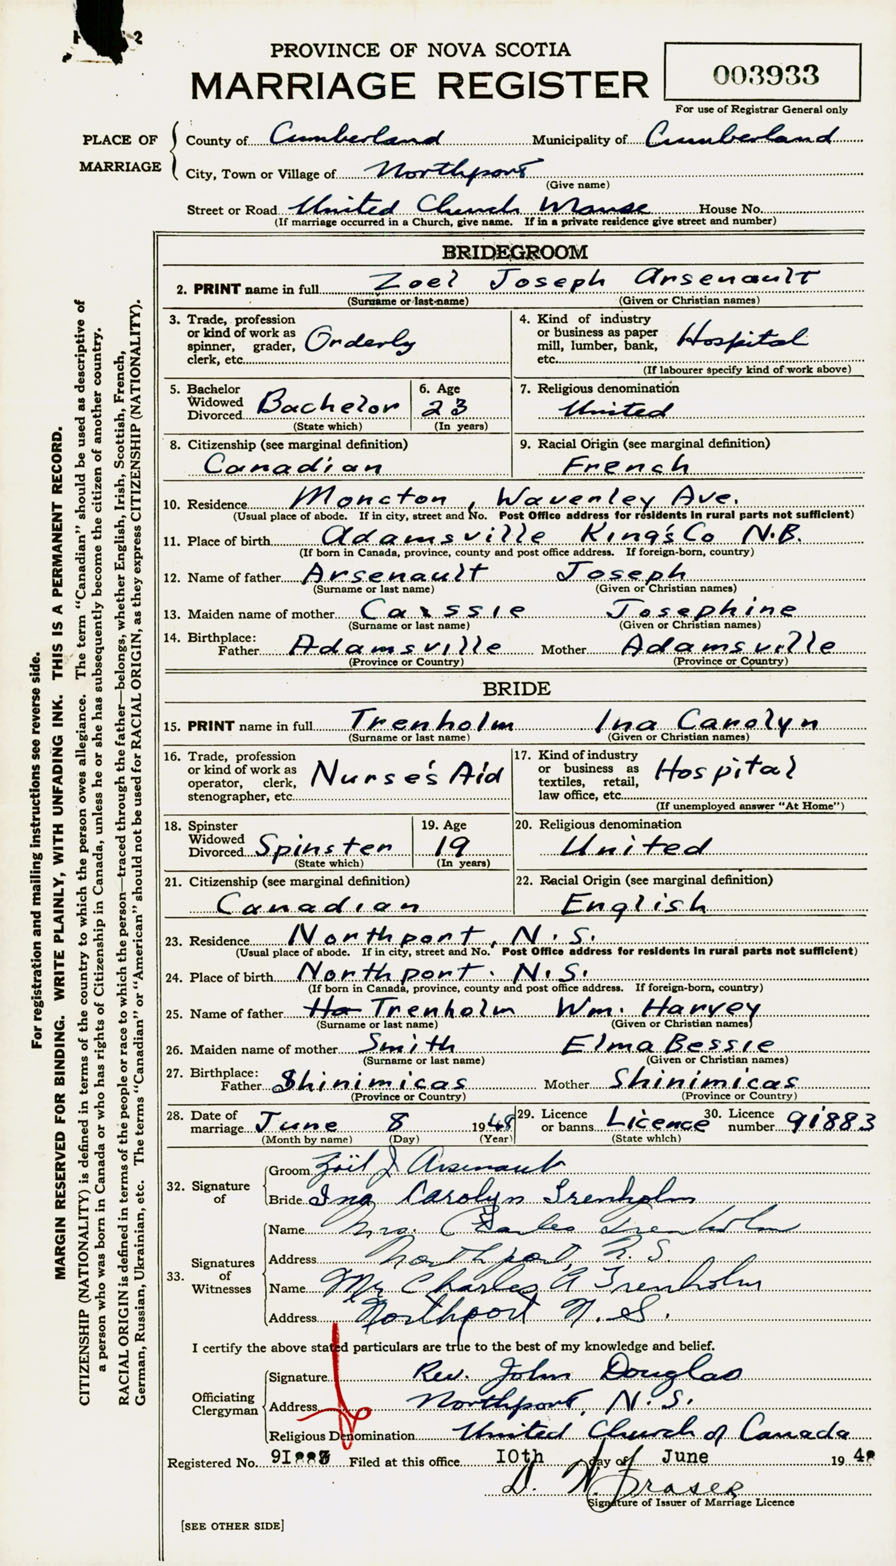 PROVINCE OF NOVA SCOTIA
MARRIAGE REGISTER
003933
For use of Registrar General only
PLACE OF MARRIAGE
County of Cumberland Municipality of Cumberland
City, Town or Village of Northport
(Give name)
Street or Road United Church Manse House No.
(If marriage occurred in a Church, give name. If in a private residence give street and number)
BRIDEGROOM
2. PRINT name in full Zoel Joseph Arsenault
(Surname or last name) (Given or Christian names)
3. Trade, profession or kind of work as spinner, grader, clerk, etc. Orderly
4. Kind of industry or business as paper mill, lumber, bank, etc. Hospital
(If labourer specify kind of work above)
5. Bachelor Widowed Divorced Bachelor
(State which)
6. Age 23
(In years)
7. Religious denomination
United
8. Citizenship (see marginal definition)
Canadian
9. Racial Origin (see marginal definition)
French
10. Residence Moncton, Waverley Ave.
(Usual place of abode. If in city, street and No. Post Office address for residents in rural parts not sufficient)
11. Place of birth Adamsville King's Co N.B.
(If born in Canada, province, county and post office address. If foreign-born, country)
12. Name of father Arsenault Joseph
(Surname or last name) (Given or Christian names)
13. Maiden name of mother Caissie Josephine
(Surname or last name) (Given or Christian names)
14. Birthplace:
Father Adamsville Mother Adamsville
(Province or Country) (Province or Country)
BRIDE
15. PRINT name in full Trenholm Ina Carolyn
(Surname or last name) (Given or Christian names)
16. Trade, profession or kind of work as operator, clerk, stenographer, etc. Nurse's Aid
17. Kind of industry or business as textiles, retail, law office, etc. Hospital
(If unemployed answer "At Home")
18. Spinster Widowed Divorced Spinster
(State which)
19. Age 19
(In years)
20. Religious denomination
United
21. Citizenship (see marginal definition)
Canadian
22. Racial Origin (see marginal definition)
English
23. Residence Northport, N.S.
(Usual place of abode. If in city, street and No. Post Office address for residents in rural parts not sufficient)
24. Place of birth Northport. N.S.
(If born in Canada, province, county and post office address. If foreign-born, country)
25. Name of father Ha Trenholm Wm. Harvey
(Surname or last name) (Given or Christian names)
26. Maiden name of mother Smith Elma Bessie
(Surname or last name) (Given or Christian names)
27. Birthplace:
Father Shinimicas Mother Shinimicas
(Province or Country) (Province or Country)
28. Date of marriage June 8 1948
(Month by name) (Day) (Year)
29. Licence or banns Licence
(State which)
30. Licence number 91883
32. Signature of
Groom Zoël J Arsenault
Bride Ina Carolyn Trenholm
33. Signatures of Witnesses
Name Mrs. Charles Trenholm
Address Northport, N.S.
Name Mr Charles A Trenholm
Address Northport N.S.
I certify the above stated particulars are true to the best of my knowledge and belief.
Officiating Clergyman
Signature Rev. John Douglas
Address Northport, N.S.
Religious Denomination United Church of Canada
Registered No. 91883 Filed at this office 10th day of June 1948
D. W. Fraser
Signature of Issuer of Marriage Licence
[SEE OTHER SIDE]
For registration and mailing instructions see reverse side.
MARGIN RESERVED FOR BINDING. WRITE PLAINLY, WITH UNFADING INK. THIS IS A PERMANENT RECORD.
CITIZENSHIP (NATIONALITY) is defined in terms of the country to which the person owes allegiance. The term "Canadian" should be used as descriptive of
a person who was born in Canada or who has rights of Citizenship in Canada, unless he or she has subsequently become the citizen of another country.
RACIAL ORIGIN is defined in terms of the people or race to which the person—traced through the father—belongs, whether English, Irish, Scottish, French,
German, Russian, Ukrainian, etc. The terms "Canadian" or "American" should not be used for RACIAL ORIGIN, as they express CITIZENSHIP (NATIONALITY).